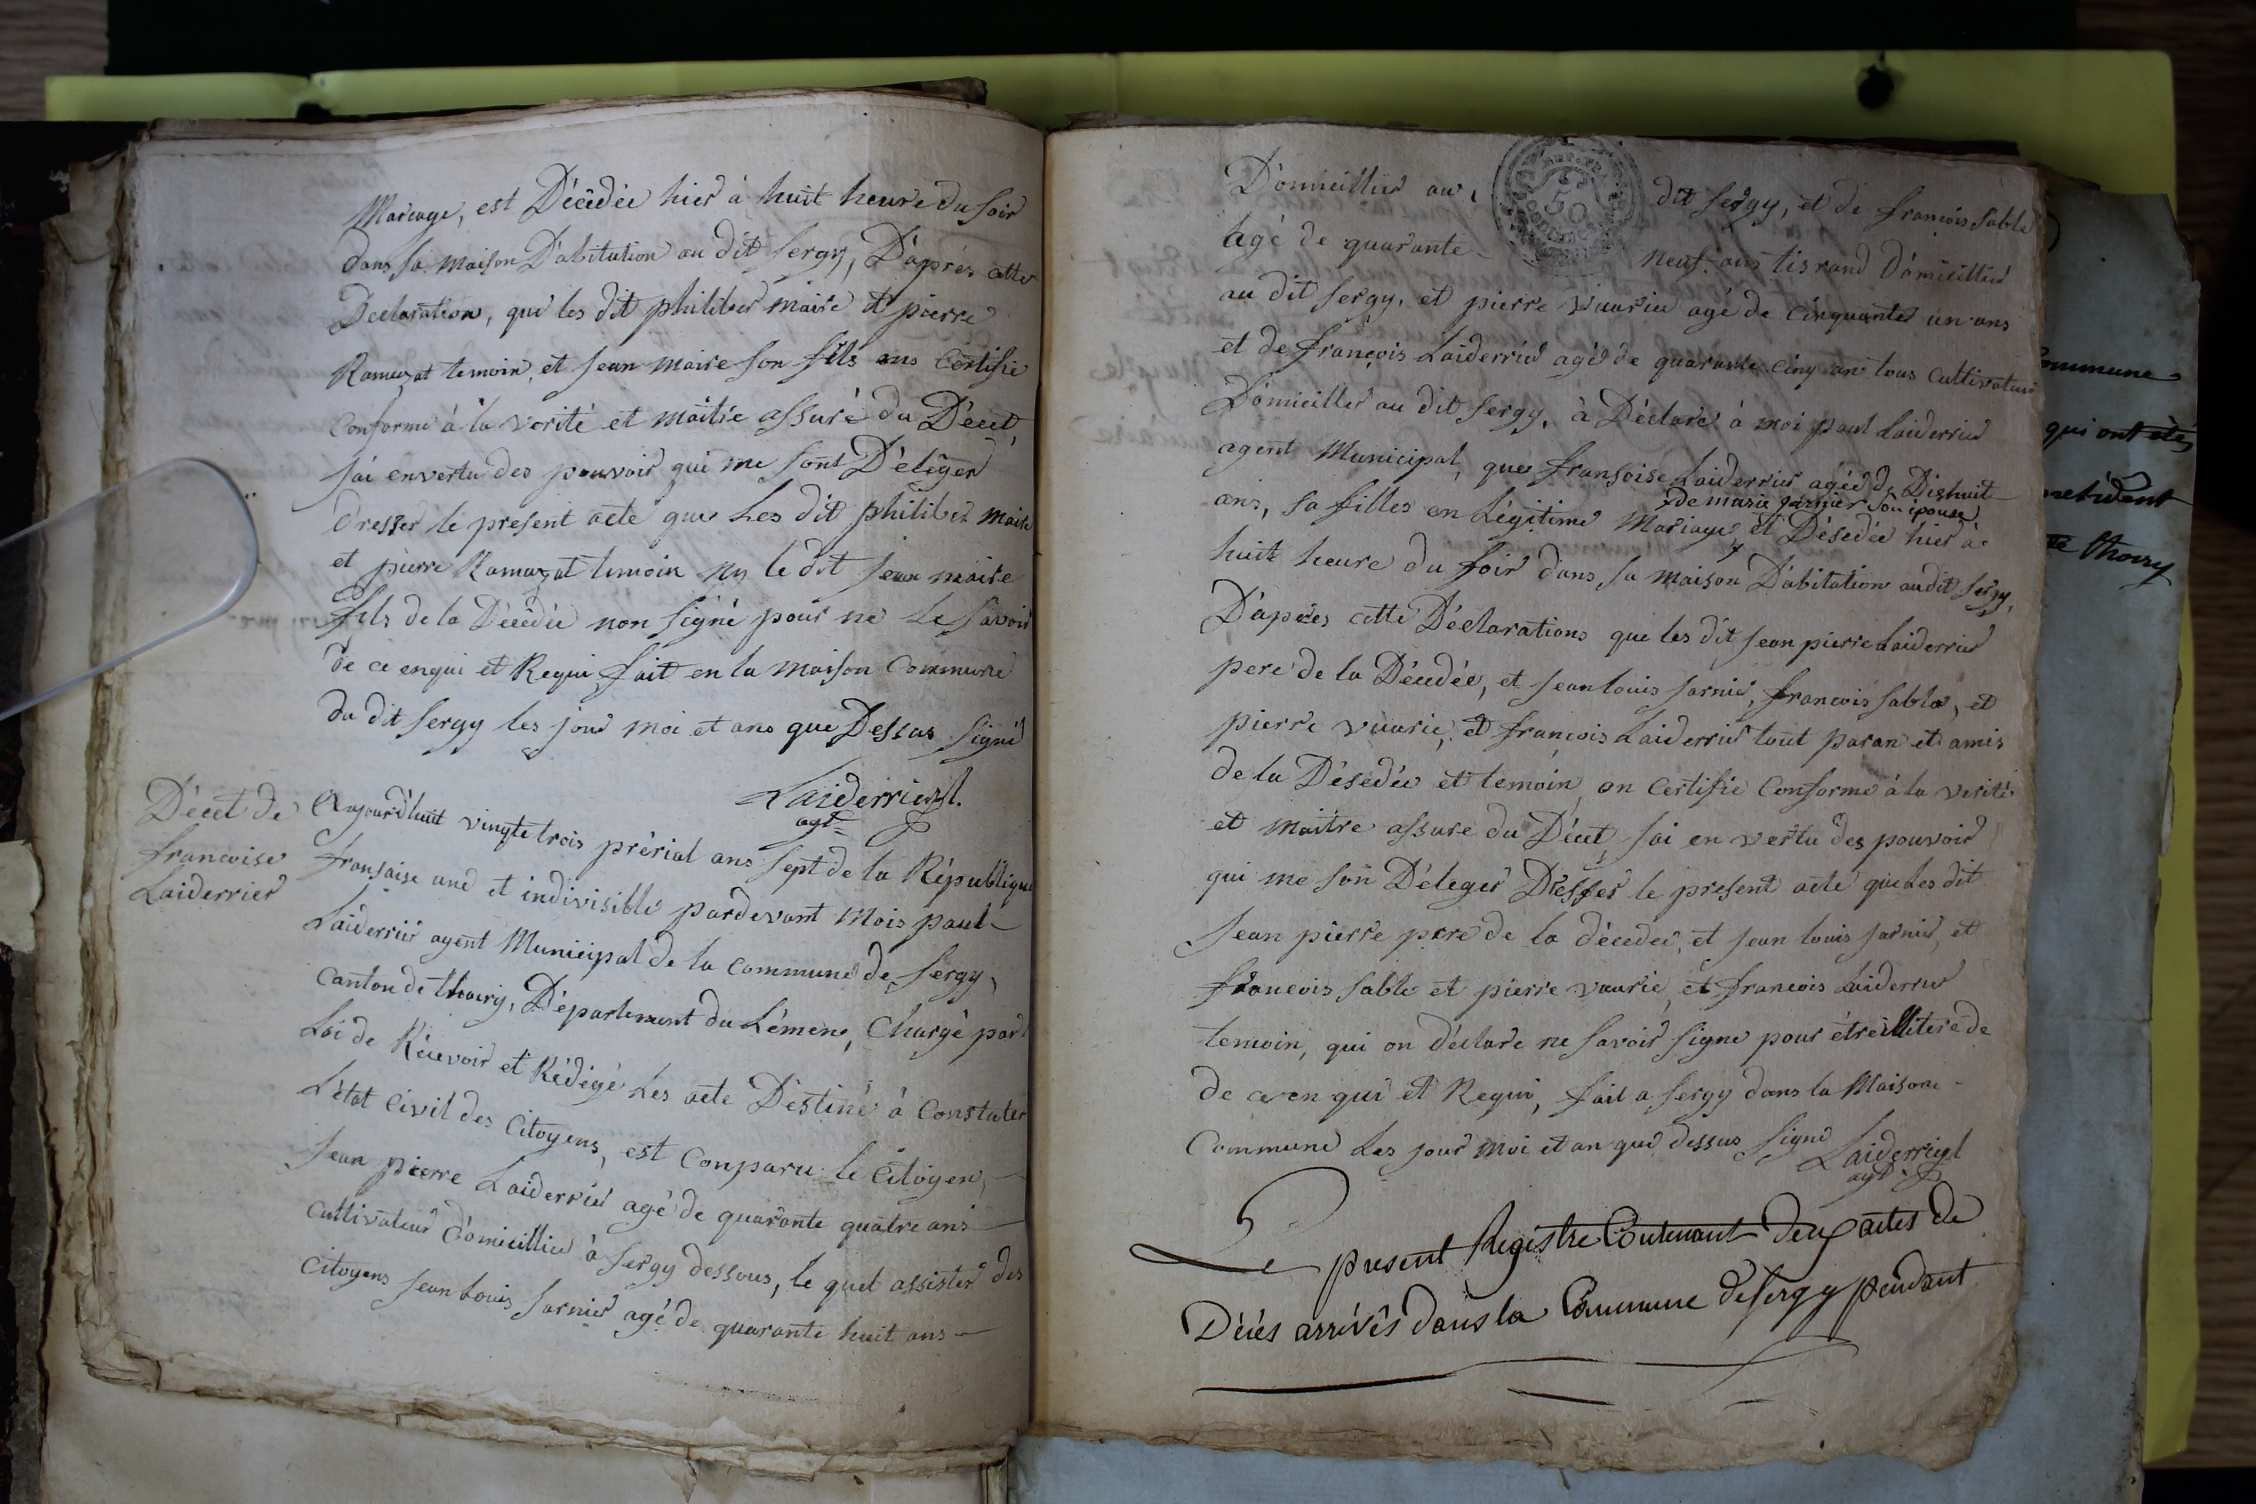 Mariage, est Décédée hier à huit heure du soir
dans sa maison D'abitation au dit Sergy, D'aprés cette
Declaration, que les dit philiber maire et pierre
Ramuzat temoin, et jean maire son fils ons Certifie
Conforme à la verité et maitre assuré du Décet,
j'ai envertu des pouvoir qui me sont Déléger
dresser le present acte que Les dit philiber maire
et pierre Ramuzat temoin ny le dit jean maire
fils de la Décédée non signé pour ne Le savoir
de ce enqui et Requi fait en la maison Commune
du dit Sergy les jour moi et ans que Dessus signé
Laiderrier
agt
Décet de
francoise
Laiderrier
Aujourd'huit vingte trois prérial ans sept de la République
fransaise une et indivisible pardevant Mois paul
Laiderrier agent Municipal de la Commune de Sergy,
Canton de thoiry, Département du Lémene, Chargé par
Loi de Récevoir et Rédigé Les acte Destiné à Constater
L'état Civil des Citoyens, est Conparu le Citoyen,
jean pierre Laiderrier agé de quarante quatre ans
Cultivateur domicillier à Sergy dessous, le quel assister des
Citoyens jean Louis jarnier agé de quarante huit ans
Domicillier au dit Sergy, et de françois Sable
Agé de quarante neuf ans tisrand Domicillier
au dit Sergy, et pierre vuarier agé de Cinquantes un ans
et de françois Laiderrier agés de quarante Cinq an tous Cultivateur
Domicillier au dit Sergy, à Déclaré à moi paul Laiderrier
agent Municipal, que fransoise Laiderrier agéé de Dishuit
de marie garnier son epouse
ans, sa filles en Légitime Mariage et Désédée hier à
huit heure du soir dans sa maison D'abitation audit Sergy,
D'apères cette Déclarations que les dit jean pierre Laiderrier
pere de la Décédée, et jean louis jarnier, francois sable, et
pierre vuarie, et françois Laiderrier tout paran et amis
de la Désédée et temoin on Certifie Conforme à la verité
et maitre assure du Décet j'ai en vertu des pouvoir
qui me son Déleger Dresser le present acte que Les dit
Jean pierre pere de la décedée, et jean louis jarnier, et
francois sable et pierre vuarie, et francois Laiderrier
temoin, qui on déclare ne savoir signe pour être illiteré de
de ce en qui et Requi, fait a Sergy dans la Maison
Commune Les jour moi et an que dessus Signé Laiderrier
agt
Le present Registre Contenant deux actes de
Décés arrivés dans la Commune de Sergy pendant
Commune
qui ont été
thoiry